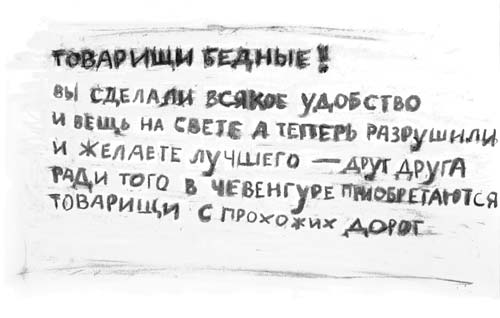 ТОВАРИЩИ БЕДНЫЕ!
ВЫ СДЕЛАЛИ ВСЯКОЕ УДОБСТВО
И ВЕЩЬ НА СВЕТЕ А ТЕПЕРЬ РАЗРУШИЛИ
И ЖЕЛАЕТЕ ЛУЧШЕГО — ДРУГ ДРУГА
РАДИ ТОГО В ЧЕВЕНГУРЕ ПРИОБРЕТАЮТСЯ
ТОВАРИЩИ С ПРОХОЖИХ ДОРОГ